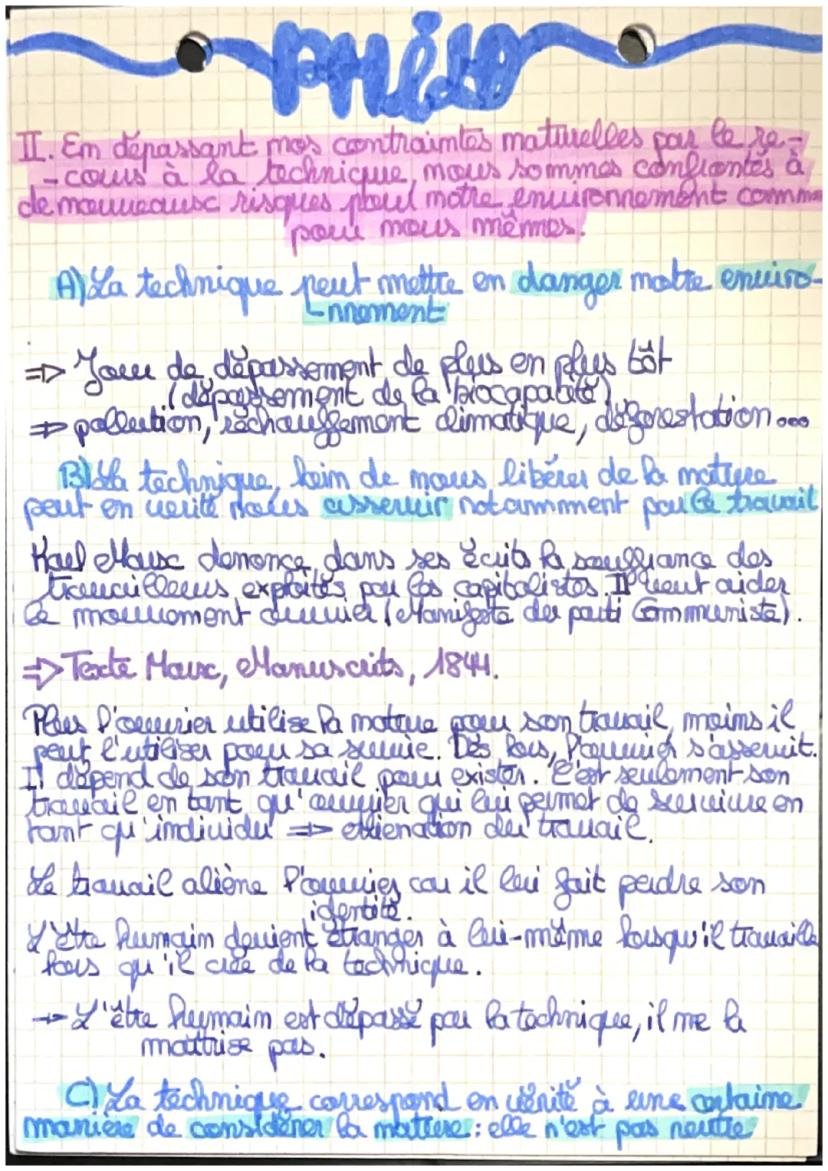 PHILO
II. En dépassant nos contraintes naturelles par le re-
-cours à la technique, nous sommes confrontés à
de nouveaux risques pour notre environnement comme
pour nous mêmes.
A) La technique peut mettre en danger notre enviro-
nnement
⇒ Jour de dépassement de plus en plus tôt
(dépassement de la biocapacité)
⇒ pollution, réchauffement climatique, déforestation...
B) La technique, loin de nous libérer de la nature
peut en vérité nous asservir notamment par le travail
Karl Marx denonce dans ses écrits la souffrance des
travailleurs exploités par les capitalistes. Il veut aider
le mouvement ouvrier (Manifeste du parti Communiste).
⇒ Texte Marx, Manuscrits, 1844.
Plus l'ouvrier utilise la nature pour son travail, moins il
peut l'utiliser pour sa survie. Dès lors, l'ouvrier s'asservit.
Il dépend de son travail pour exister. C'est seulement son
travail en tant qu'ouvrier qui lui permet de survivre en
tant qu'individu ⇒ aliénation du travail.
Le travail aliène l'ouvrier car il lui fait perdre son
identité.
L'être humain devient étranger à lui-même lorsqu'il travaille
lors qu'il crée de la technique.
→ L'être humain est dépassé par la technique, il ne la
maîtrise pas.
C) La technique correspond en vérité à une certaine
manière de considérer la matière : elle n'est pas neutre